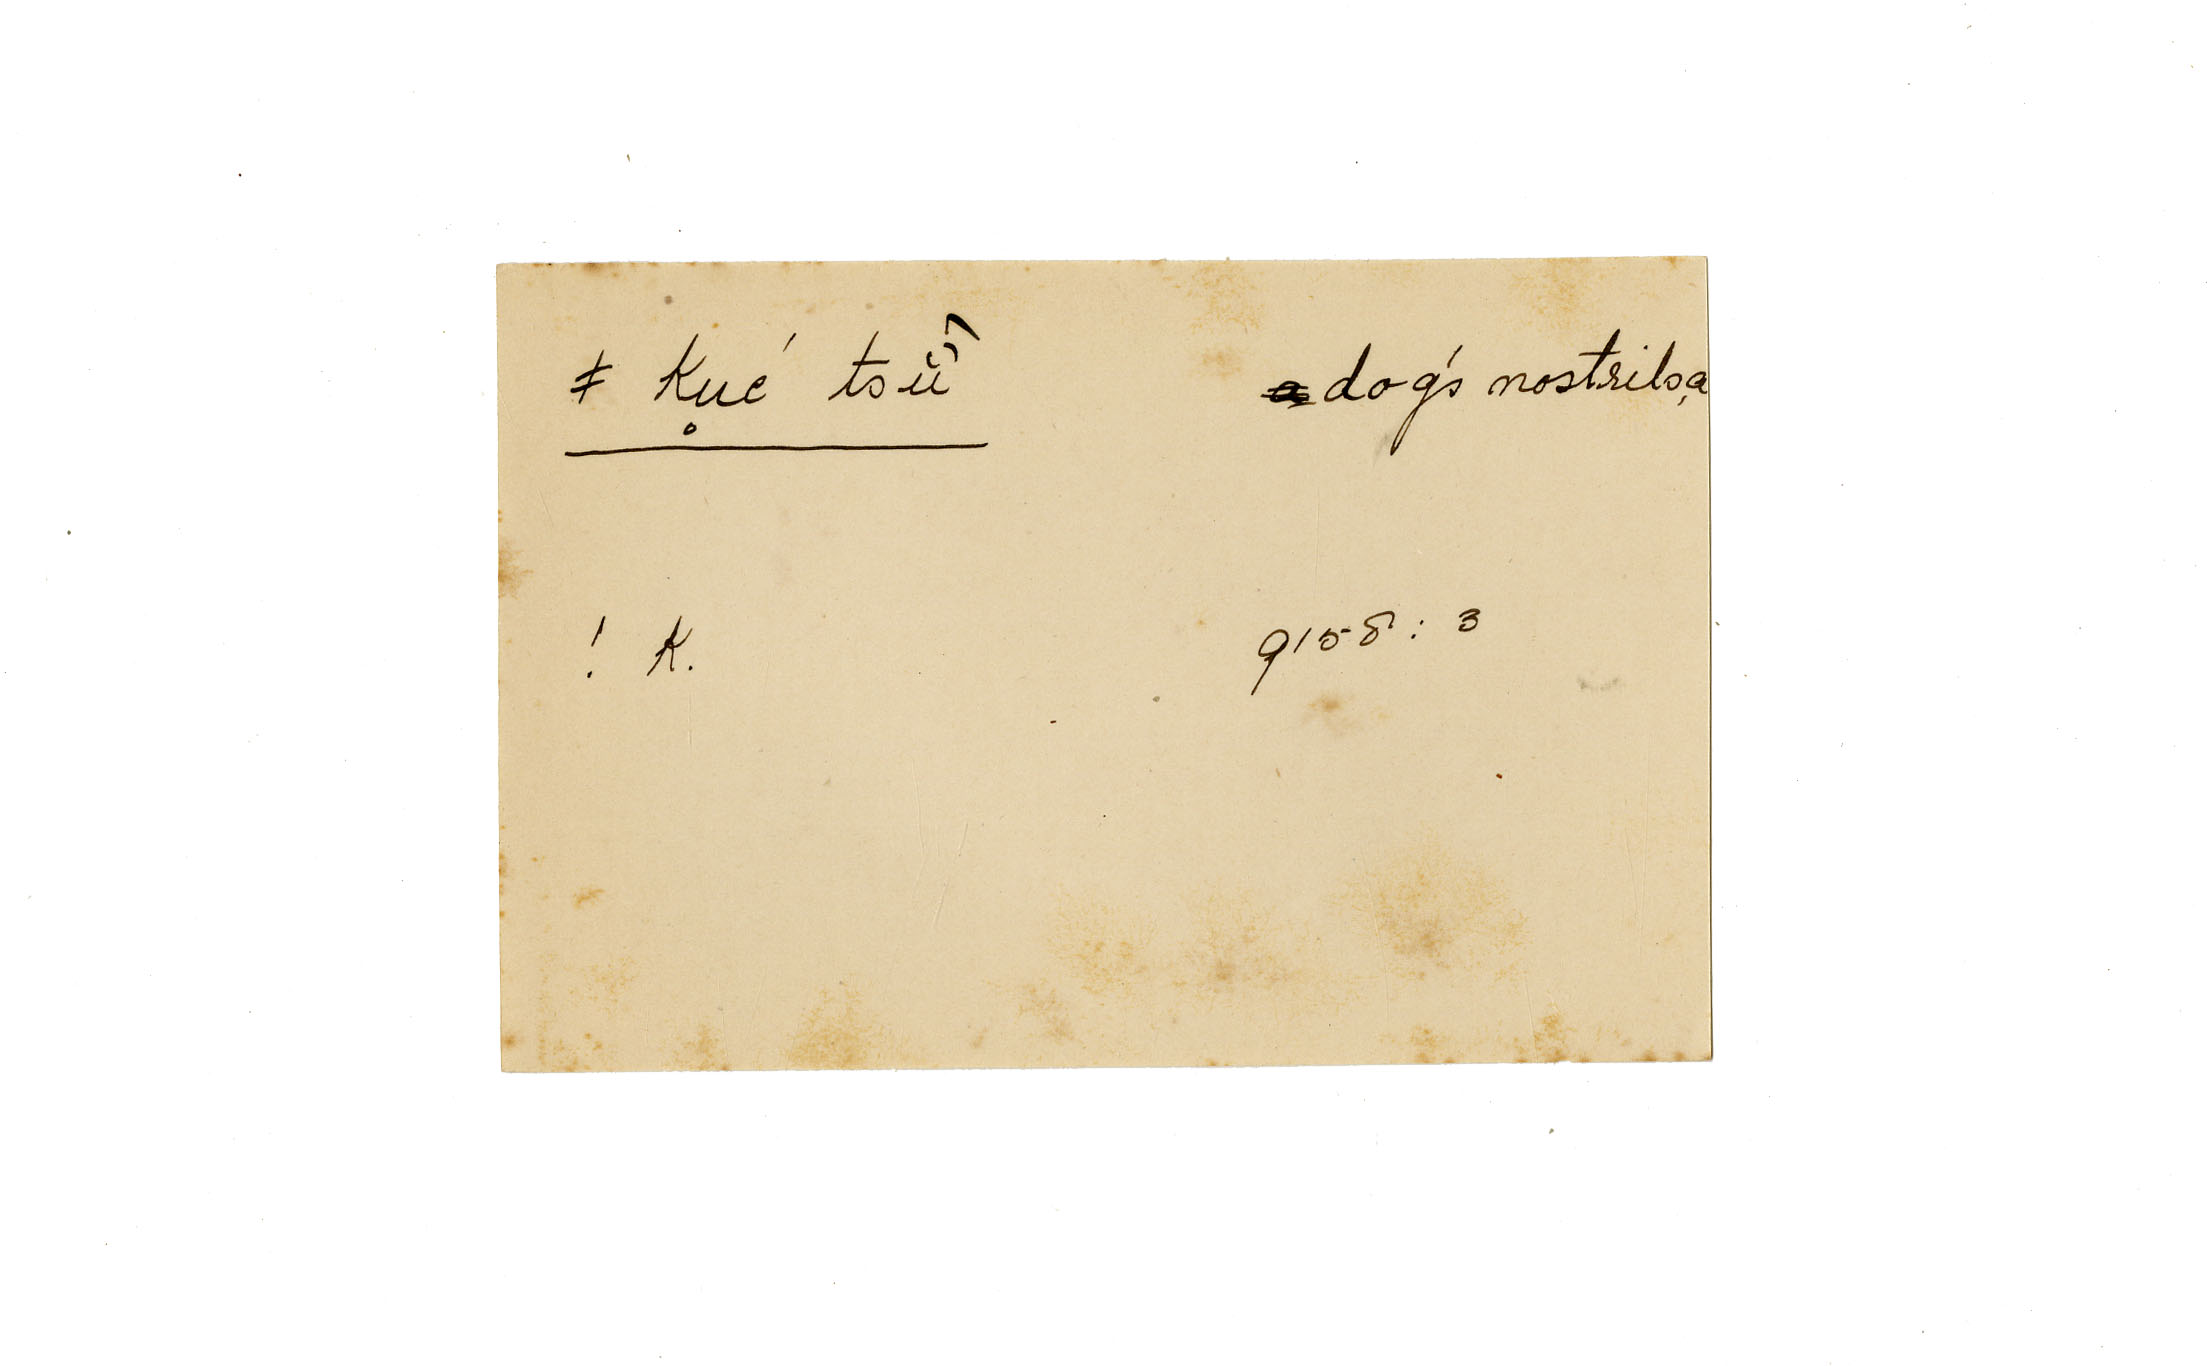 ǂ Ku̥é tsǖ́ dog's nostrils, a
! K. 9158 : 3